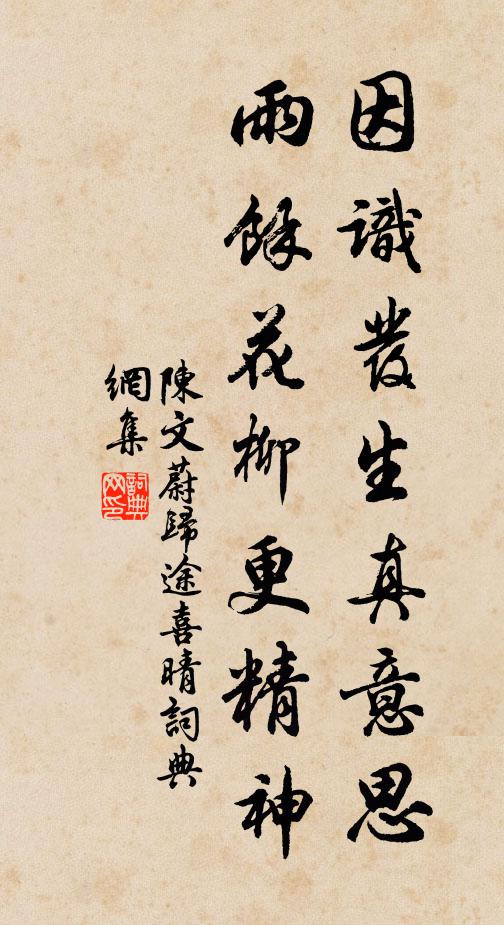 因識發生真意思
雨餘花柳更精神
陳文蔚歸途喜晴詞典
網集
詞典
网印